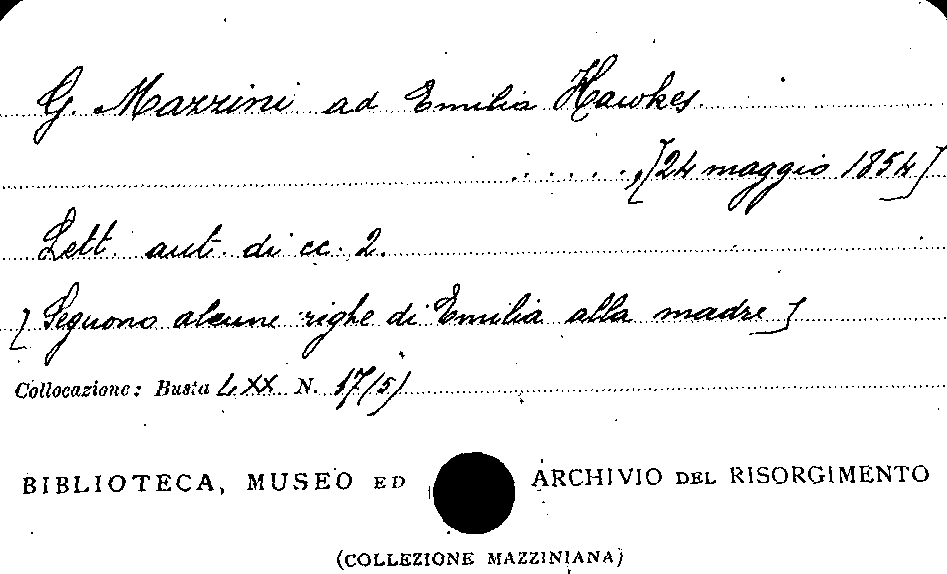 G. Mazzini ad Emilia Hawkes.
......, [24 maggio 1854]
Lett. aut. di cc. 2.
[Seguono alcune righe di Emilia alla madre]
Collocazione: Busta LXX N. 17(5)
BIBLIOTECA, MUSEO ED ARCHIVIO DEL RISORGIMENTO
(COLLEZIONE MAZZINIANA)